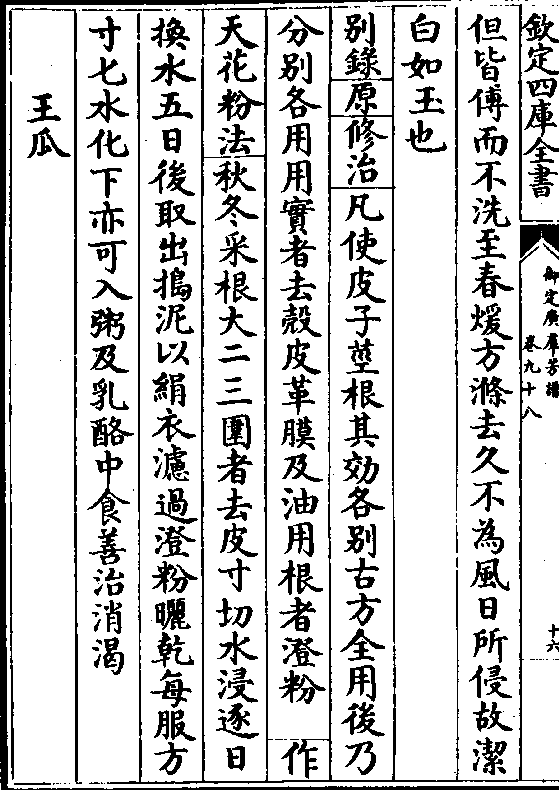 欽定四庫全書
御定廣羣芳譜
卷九十八
十六
但皆傅而不洗至春煖方滌去久不為風日所侵故潔
白如玉也
別錄原修治凡使皮子莖根其効各別古方全用後乃
分別各用用實者去殼皮革膜及油用根者澄粉 作
天花粉法秋冬采根大二三圍者去皮寸切水浸逐日
換水五日後取出搗泥以絹衣濾過澄粉曬乾每服方
寸匕水化下亦可入粥及乳酪中食善治消渴
王瓜